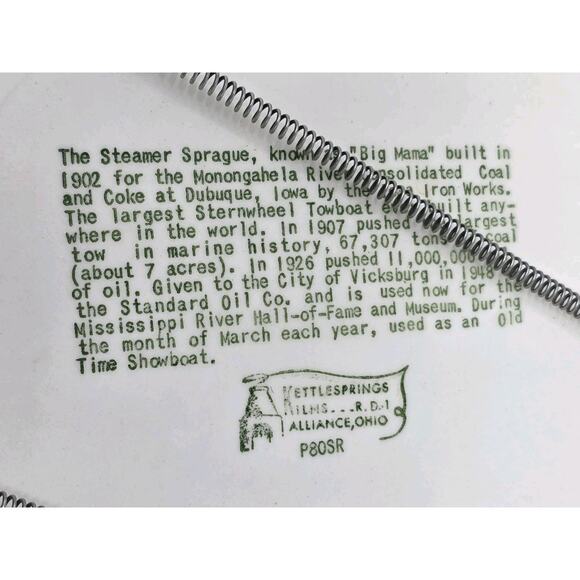 The Steamer Sprague, known "Big Mama" built in
1902 for the Monongahela River Consolidated Coal
and Coke at Dubuque, Iowa by the Iron Works.
The largest Sternwheel Towboat ever built any-
where in the world. In 1907 pushed largest
tow in marine history, 67,307 tons coal
(about 7 acres). In 1926 pushed 11,000,000
of oil. Given to the City of Vicksburg in 1948
the Standard Oil Co. and is used now for the
Mississippi River Hall-of-Fame and Museum. During
the month of March each year, used as an Old
Time Showboat.
KETTLESPRINGS
KILNS...R.D.1
ALLIANCE,OHIO
P80SR